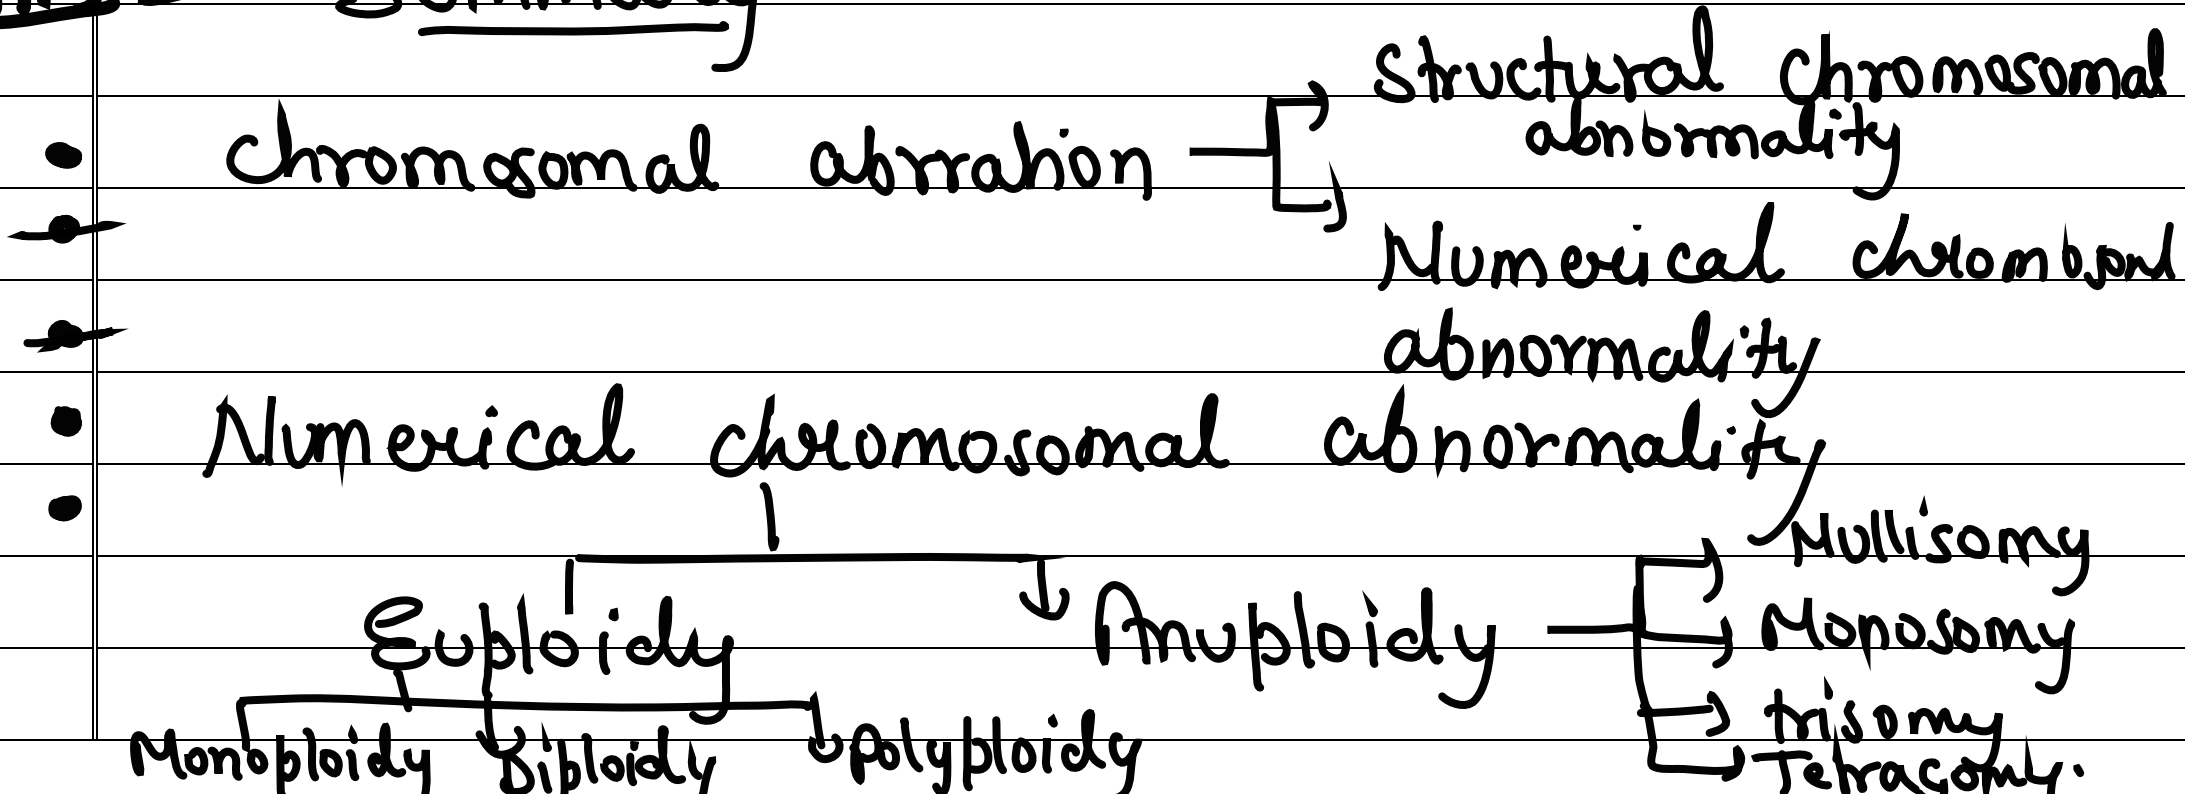 Summary
Structural chromosomal
abnormality
Chromosomal abrration
Numerical chromosomal
abnormality
Numerical chromosomal abnormality
Euploidy
Anuploidy
Nullisomy
Monosomy
trisomy
Tetrasomy.
Monoploidy Diploidy Polyploidy